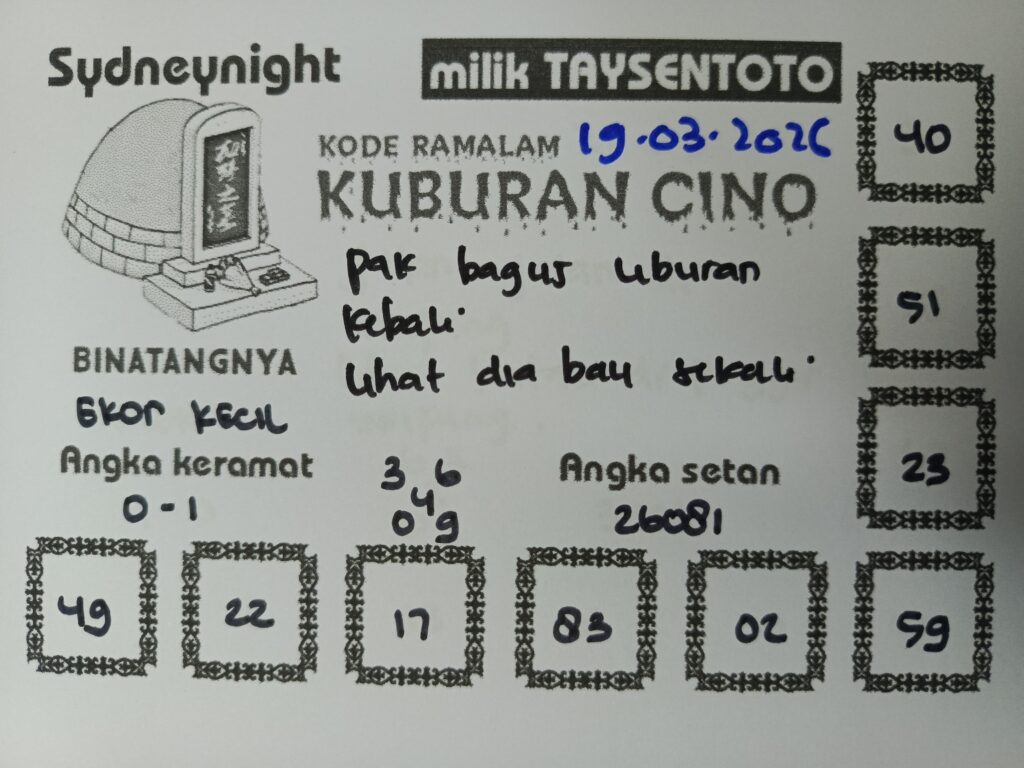 Sydneynight
milik TAYSENTOTO
KODE RAMALAM 19.03.2026
KUBURAN CINO
pak bagus uburan
kebali
lihat dia bau sekali
BINATANGNYA
EKOR KECIL
Angka keramat
0-1
3 6
4
0 9
Angka setan
26081
40
51
23
49 22 17 83 02 59